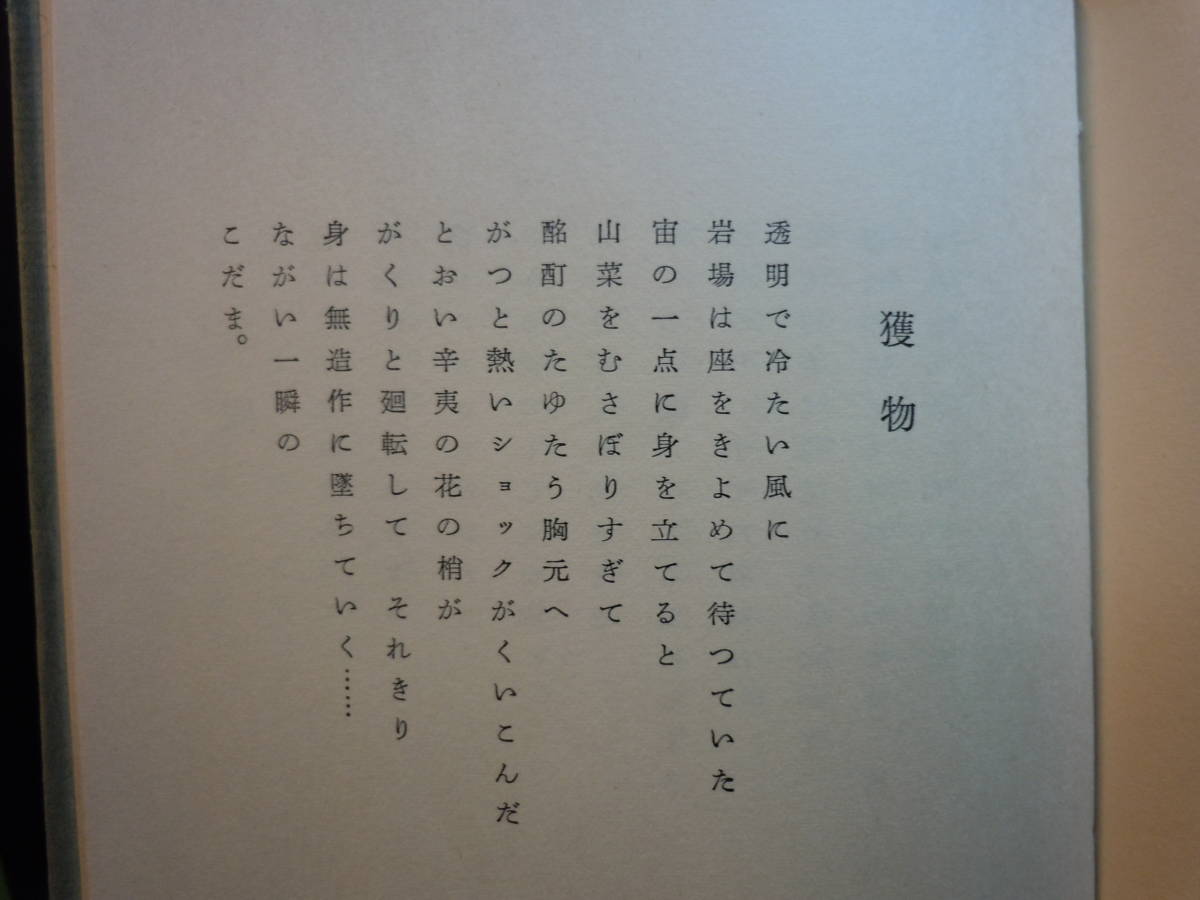 獲物
透明で冷たい風に
岩場は座をきよめて待つていた
宙の一点に身を立てると
山菜をむさぼりすぎて
酩酊のたゆたう胸元へ
がつと熱いショックがくいこんだ
とおい辛夷の花の梢が
がくりと廻転して　それきり
身は無造作に墜ちていく……
ながい一瞬の
こだま。